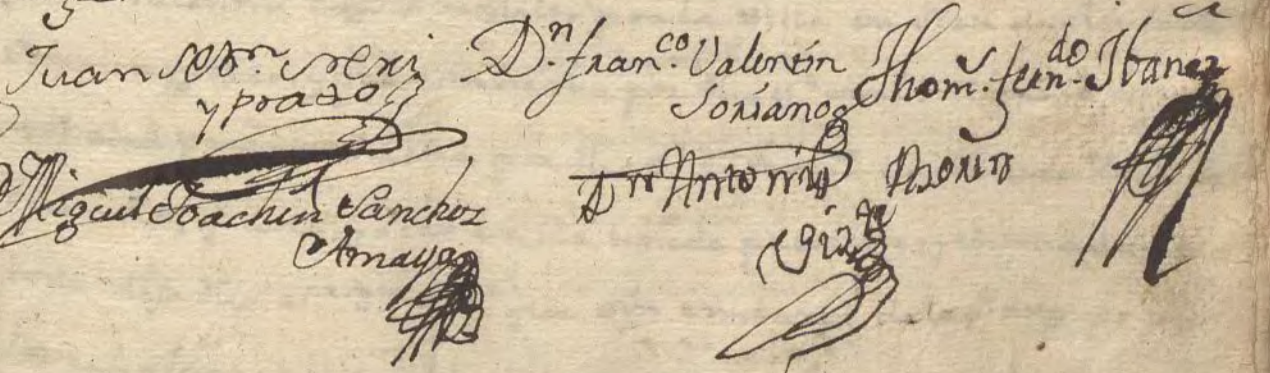 Juan
y prado
D.n Fran.co Valentín
Soriano
Thom.s fern.do Ibanez
Miguel Joachin Sanchez
Amaya
D.n Antonio